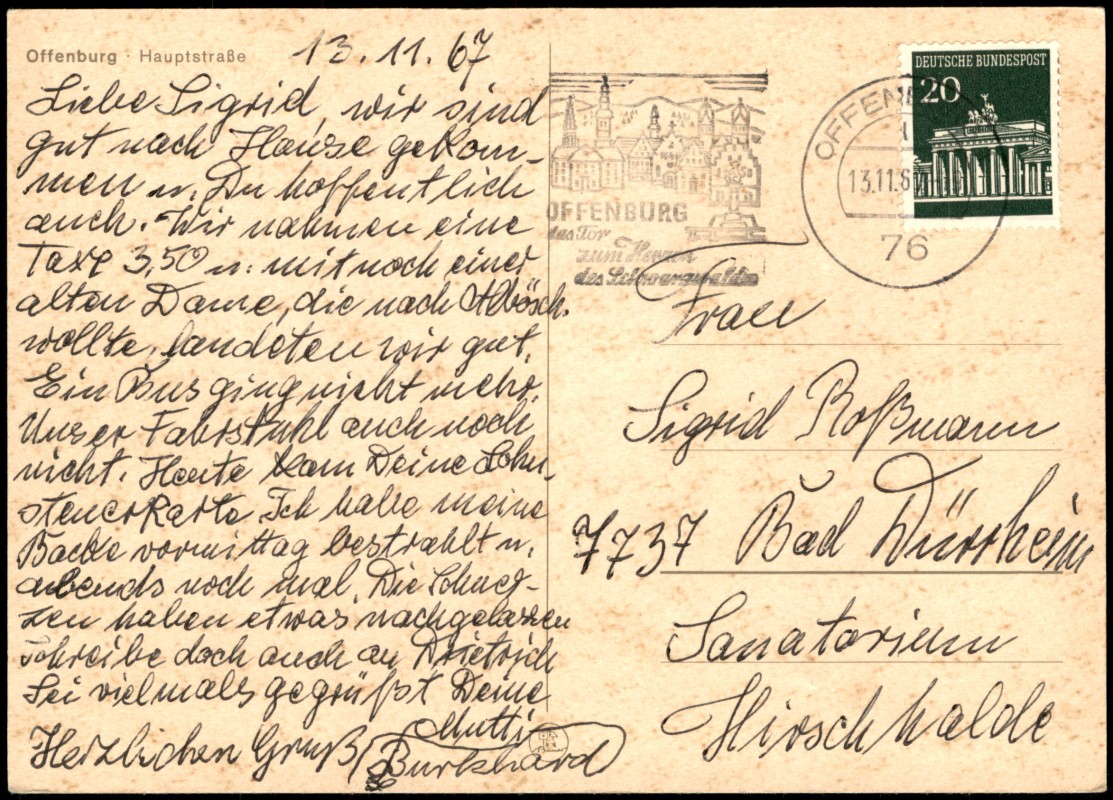 Offenburg · Hauptstraße
13.11.67
Liebe Sigrid, wir sind
gut nach Hause gekom-
men u. Du hoffentlich
auch. Wir nahmen eine
Taxe 3,50 u. mit noch einer
alten Dame, die nach
wollte, landeten wir gut.
Ein Bus ging nicht mehr.
Unser Fahrstuhl auch noch
nicht. Heute kam Deine Lohn-
steuerkarte. Ich habe meine
Backe vormittag bestrahlt u.
abends noch mal. Die Schmer-
zen haben etwas nachgelassen
Schreibe doch auch an Dietrich
Sei vielmals gegrüßt Deine
Mutti
Herzlichen Gruß Burkhard
DEUTSCHE BUNDESPOST
20
OFFEN
13.11.6
76
OFFENBURG
das Tor
zum Herzen
des Schwarzwaldes
Frau
Sigrid Roßmann
7737 Bad Dürrheim
Sanatorium
Hirschhalde